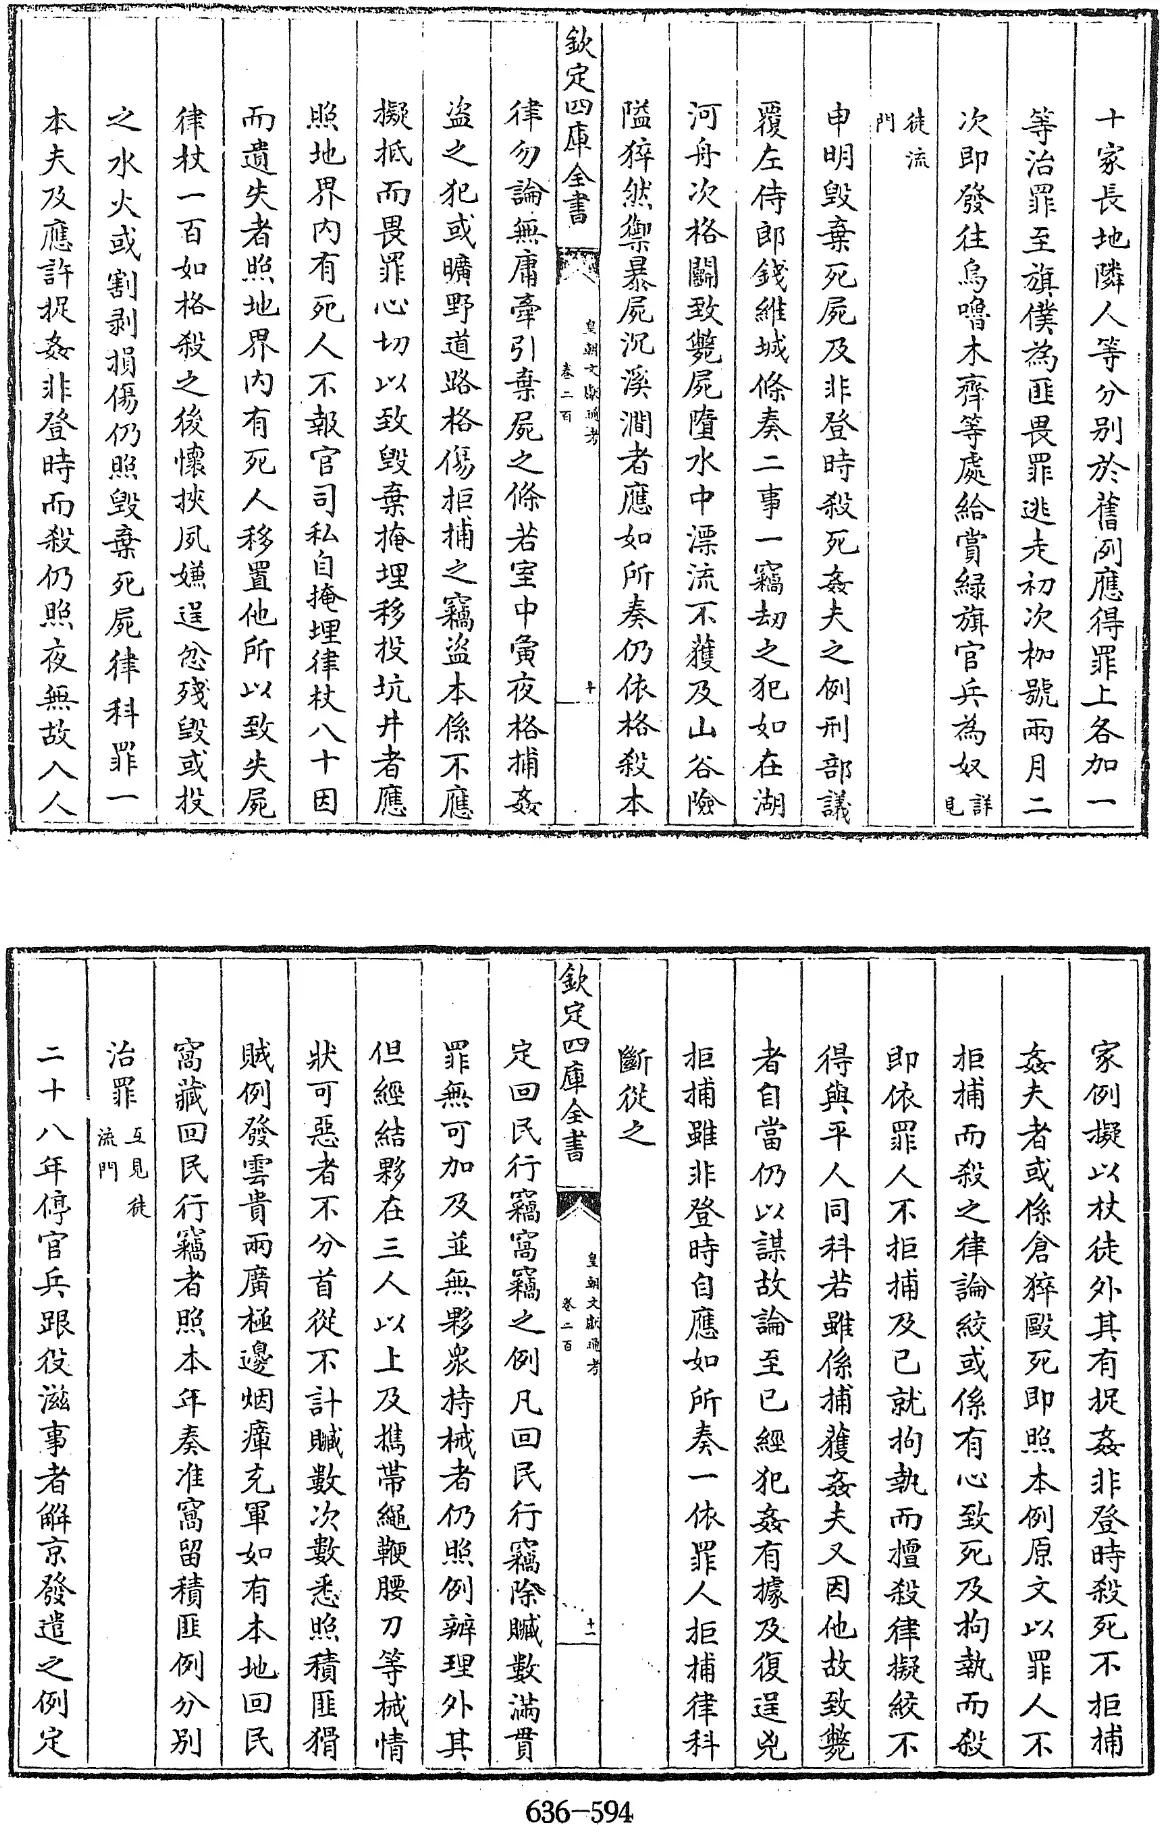 十家長地隣人等分別於舊例應得罪上各加一
等治罪至旗僕為匪畏罪逃走初次枷號兩月二
次即發往烏嚕木齊等處給賞緑旗官兵為奴詳見
徒流門
申明毀棄死屍及非登時殺死姦夫之例刑部議
覆左侍郎錢維城條奏二事一竊刼之犯如在湖
河舟次格鬬致斃屍墮水中漂流不獲及山谷險
隘猝然禦暴屍沉溪澗者應如所奏仍依格殺本
欽定四庫全書
皇朝文獻通考
卷二百
十
律勿論無庸牽引棄屍之條若室中黄夜格捕姦
盜之犯或曠野道路格傷拒捕之竊盜本係不應
擬抵而畏罪心切以致毀棄掩埋移投坑井者應
照地界内有死人不報官司私自掩埋律杖八十因
而遺失者照地界内有死人移置他所以致失屍
律杖一百如格殺之後懷挾夙嫌逞忿殘毀或投
之水火或割剥損傷仍照毀棄死屍律科罪一
本夫及應許捉姦非登時而殺仍照夜無故入人
家例擬以杖徒外其有捉姦非登時殺死不拒捕
姦夫者或係倉猝毆死即照本例原文以罪人不
拒捕而殺之律論絞或係有心致死及拘執而殺
即依罪人不拒捕及已就拘執而擅殺律擬絞不
得與平人同科若雖係捕獲姦夫又因他故致斃
者自當仍以謀故論至已經犯姦有據及復逞兇
拒捕雖非登時自應如所奏一依罪人拒捕律科
斷從之
欽定四庫全書
皇朝文獻通考
卷二百
十一
定回民行竊窩竊之例凡回民行竊除贓數滿貫
罪無可加及並無夥衆持械者仍照例辦理外其
但經結夥在三人以上及攜帶繩鞭腰刀等械情
狀可惡者不分首從不計贓數次數悉照積匪猾
賊例發雲貴兩廣極邊烟瘴充軍如有本地回民
窩藏回民行竊者照本年奏准窩留積匪例分別
治罪互見徒流門
二十八年停官兵跟役滋事者解京發遣之例定
636-594